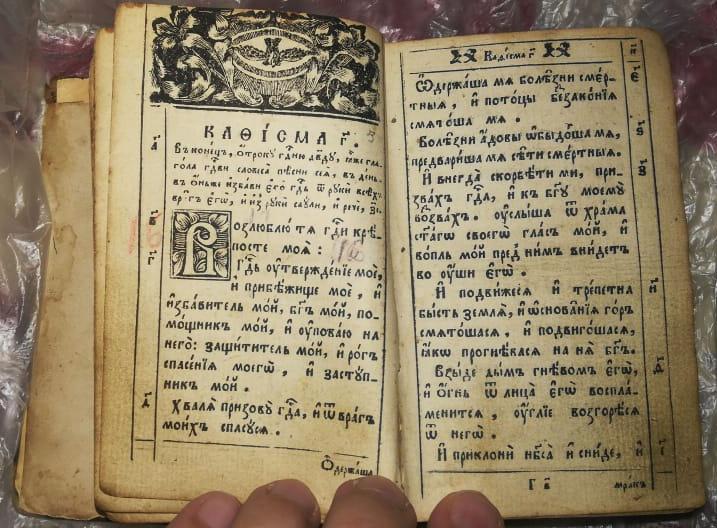 КАѲІСМА Г҃.
Въ конецъ, ѻ҆́трокꙋ гдⷭ҇ню двⷣꙋ, ꙗ҆̀же гла-
гола гдⷭ҇ви словеса пѣсни сеѧ̀, въ день
в ѻ҆́ньже избави є҆го̀ гдⷭ҇ь ѿ рꙋки всѣхъ
вра̑гъ є҆гѡ̀, и҆ из рꙋки саꙋли, и҆ рече̑,
а҃
в҃
г҃
Возлюблю́ тѧ гдⷭ҇и крѣ́-
посте моѧ̀:
гдⷭ҇ь ᲂу҆твержде́нїе моѐ,
и҆ прибѣ́жище моѐ, и҆
и҆зба́витель мо́й, бг҃ъ мо́й, по-
мо́щникъ мо́й, и҆ ᲂу҆пова́ю на
него̀: защи́титель мо́й, и҆ ро́гъ
спасе́нїѧ моегѡ̀, и҆ застꙋ́п-
никъ мо́й.
д҃
Хвалѧ̀ призовꙋ̀ гдⷭ҇а, и҆ ѿ вра̑гъ
мои́хъ спасꙋ́сѧ.
Ѡ҆держа́ша
Каѳі́сма г҃
Ѡ҆держа́ша мѧ болѣ̑зни сме́р-
тныѧ, и҆ пото́цы беззако́нїѧ
смѧто́ша мѧ.
є҃
Болѣ̑зни а҆́довы ѡ҆быдо́ша мѧ,
предвари́ша мѧ сѣ̑ти сме́ртныѧ.
ѕ҃
И҆ внегда̀ скорбѣ́ти ми, при-
з҃
зва́хъ гдⷭ҇а, и҆ къ бг҃ꙋ моемꙋ̀
воззва́хъ. ᲂу҆слы́ша ѿ хра́ма
ст҃а́гѡ своегѡ̀ гла́съ мо́й, и҆
во́пль мо́й пред̾ ни́мъ вни́детъ
во ᲂу҆́ши є҆гѡ̀.
И҆ подви́жесѧ и҆ тре́петна
и҃
бы́сть землѧ̀, и҆ ѡ҆снова́нїѧ го́ръ
смѧто́шасѧ, и҆ подвиго́шасѧ,
ꙗ҆́кѡ прогнѣ́васѧ на нѧ̀ бг҃ъ.
Взы́де ды́мъ гнѣ́вомъ є҆гѡ̀,
ѳ҃
и҆ ѻ҆́гнь ѿ лица̀ є҆гѡ̀ воспла-
мени́тсѧ, ᲂу҆́глїе возгорѣ́сѧ
ѿ негѡ̀.
И҆ приклонѝ нб҃са̀ и҆ сни́де, и҆
і҃
Г в҃
мра́къ